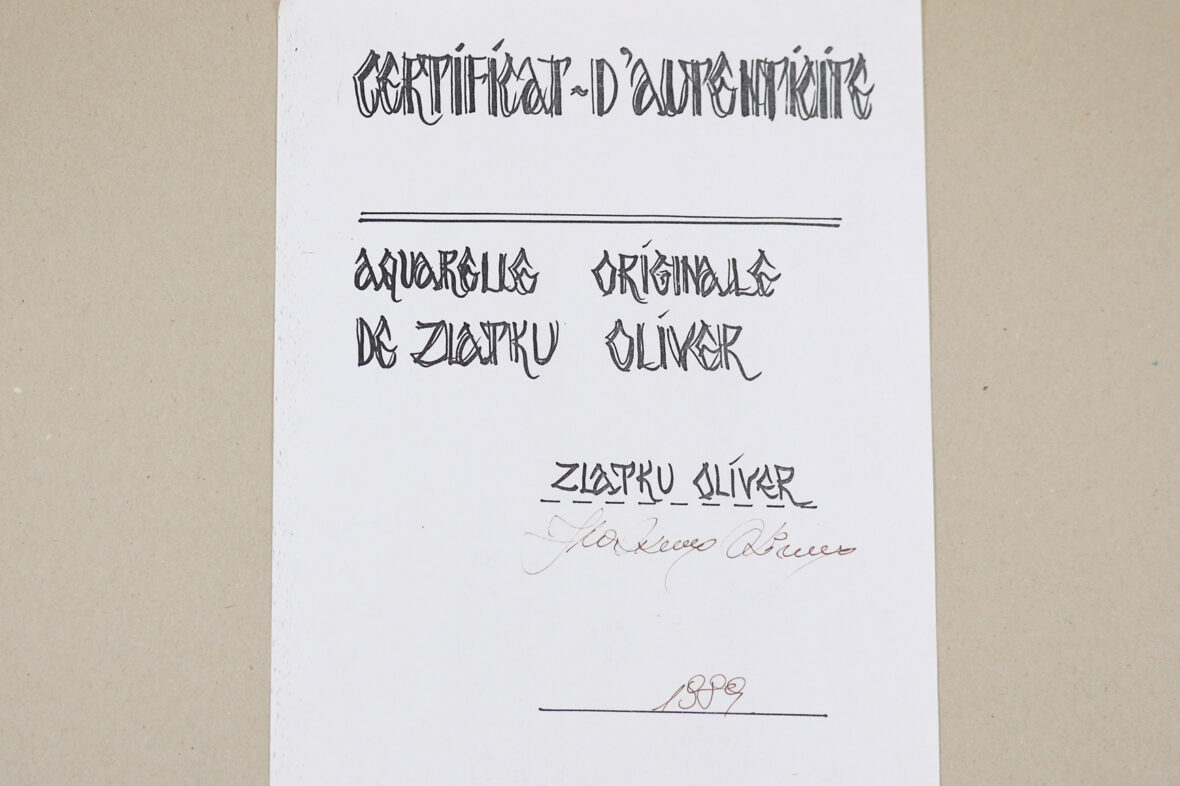 CERTIFICAT~D'AUTENTICITE
AQUARELLE ORIGINALE
DE ZLATKU OLIVER
ZLATKU OLIVER
1989